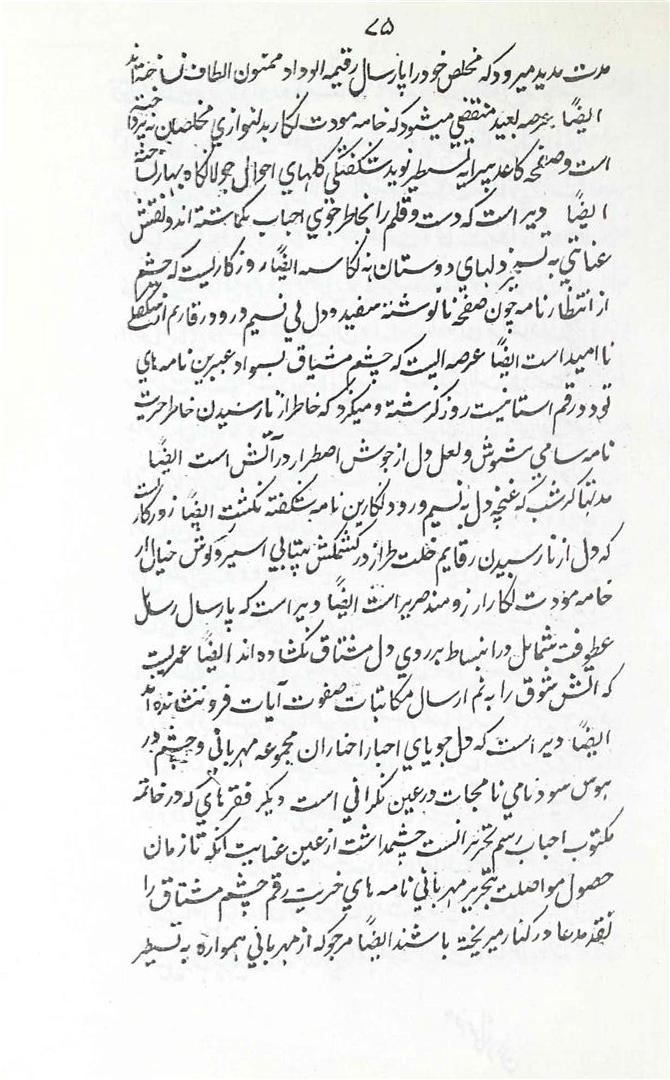 ۷۵
مدت مدید میرود که مخلص خود را پارسال رقیمه الوداد ممنون الطاف نساخته اند
ایضاً عرصه بعید منقضی میشود که خامه مودت نگار بدلنوازي مخلصان نپرداخته
است و صفحه کاغذ پیرایه تسطیر نوید شکفتگي گلهاي احوال جولانگاه بهار نساخته
ایضاً دیر است که دست و قلم را بخاطر خوي احباب نگماشته اند و نقش
عنایتي به دلهاي دوستان نه نگاسه ایضاً روزگاریست که چشم
از انتظار نامه چون صفحه نانوشته سفید و دل بي نسیم درود رقایم
ناامید است ایضاً عرصه الیست که چشم مشتاق بسواد عنبرین نامه هاي
تودد رقم استانیت روز گرشته و میگزد که خاطر از نارسیدن خاطر حریت
نامه سامي مشوش و لعل دل از جوش اصطرار در آتش است ایضاً
مدتها گرشت که غنچه دل به نسیم ورود نگارین نامه شکفته نگشت ایضاً روزگاریست
که دل از نارسیدن رقایم خلت طراز در کشمکش بیتابي اسیر و گوش خیالي از
خامه مودت نگار ارزومند صریر است ایضاً دیر است که پارسال رسل
عطوفت شمایل در انبساط بر روي دل مشتاق نکشاده اند ایضاً عمریست
که آتش شوق را به نم ارسال مکاتبات صفوت آیات فرو ننشانده اند
ایضاً دیر است که دل جویاي احبار اخباران مجموعه مهرباني و چشم در
هوس سود نامي نامجات در عین نگراني است دیگر فقرهاي که در خاتمه
مکتوب احباب رسم تحریر انست چشمداشت از عین عنایت آنکه تا زمان
حصول مواصلت بتحریر مهرباني نامه هاي خریت رقم چشم مشتاق را
نقد مدعا در کنار میریخته باشند ایضاً مرجو که از مهرباني همواره به تسطیر